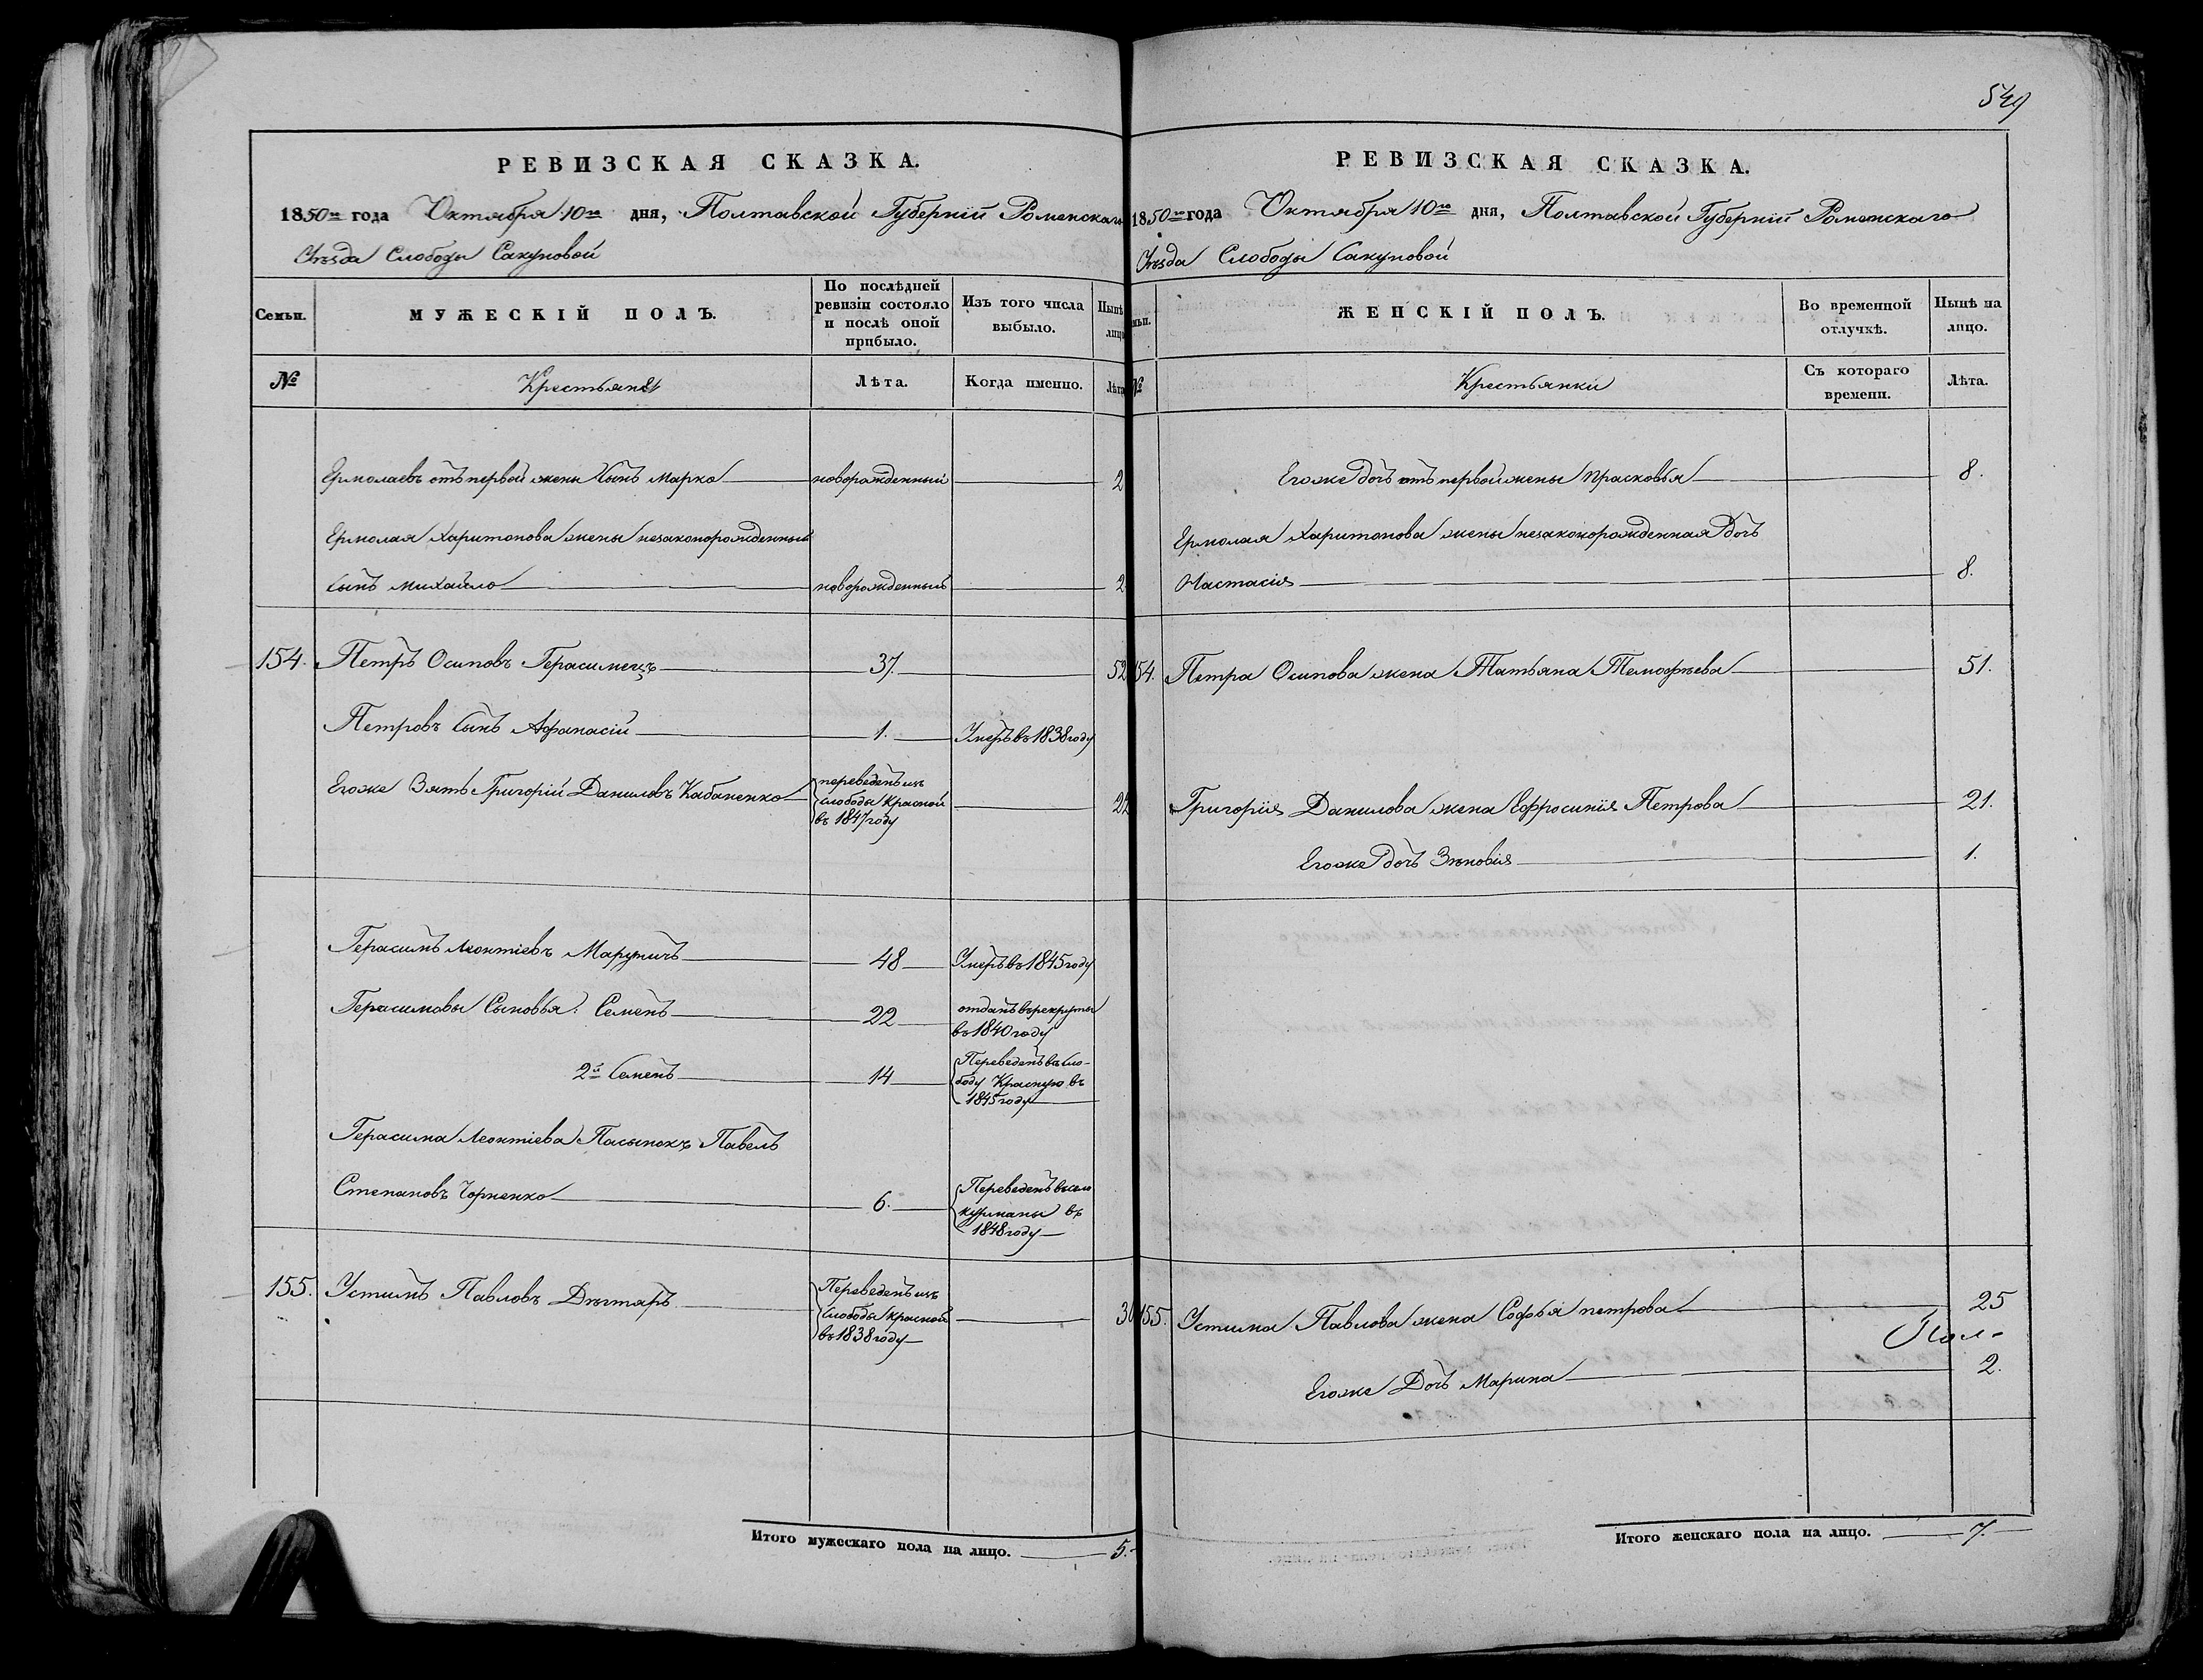 549
РЕВИЗСКАЯ СКАЗКА.
1850го года Октября 10го дня, Полтавской Губерніи Роменскаго
Уѣзда Слободы Сакуновой
Семьи.
МУЖЕСКІЙ ПОЛЪ.
По послѣдней ревизіи состояло и послѣ оной прибыло.
Изъ того числа выбыло.
Нынѣ
лицо
№
Крестьяне
Лѣта.
Когда именно.
Лѣта
Ермолаевъ отъ первой жены Сынъ Марко новорожденный 2
Ермолая Харитонова жены незаконорожденный
Сынъ Михайло новорожденный 2
154. Петръ Осиповъ Герасимецъ 37. 52
Петровъ Сынъ Афанасій 1. Умеръ въ 1838 году
Егоже Зять Григорій Даниловъ Кабаненко
переведенъ изъ
слободы Красной
въ 1847 году
22
Герасимъ Леонтіевъ Маружичъ 48 Умеръ въ 1845 году
Герасимовы Сыновья: Семенъ 22
отданъ в рекруты
въ 1840 году
2й Семенъ 14
Переведенъ въ сло-
боду Красную въ
1845 году
Герасима Леонтіева Пасынокъ Павелъ
Степановъ Чорненко 6.
Переведенъ въ село
курманы въ
1848 году
155. Устимъ Павловъ Дѣгтярь
Переведенъ изъ
слободы Красной
въ 1838 году
Итого мужескаго пола на лицо. 5.
РЕВИЗСКАЯ СКАЗКА.
1850го года Октября 10го дня, Полтавской Губерніи Роменскаго
Уѣзда Слободы Сакуновой
ЖЕНСКІЙ ПОЛЪ.
Во временной отлучкѣ.
Нынѣ на лицо.
№
Крестьянки
Съ котораго времени.
Лѣта.
Егоже дочь отъ первой жены Прасковья 8.
Ермолая Харитонова жены незаконорожденная Дочь
Настасія 8.
154. Петра Осипова жена Татьяна Темофѣева 51.
Григорія Данилова жена Ефросинія Петрова 21.
Егоже дочь Зѣновія 1.
155. Устима Павлова жена Софья петрова 25
Пол-
Егоже Дочь Марина 2.
Итого женскаго пола на лицо. 7.